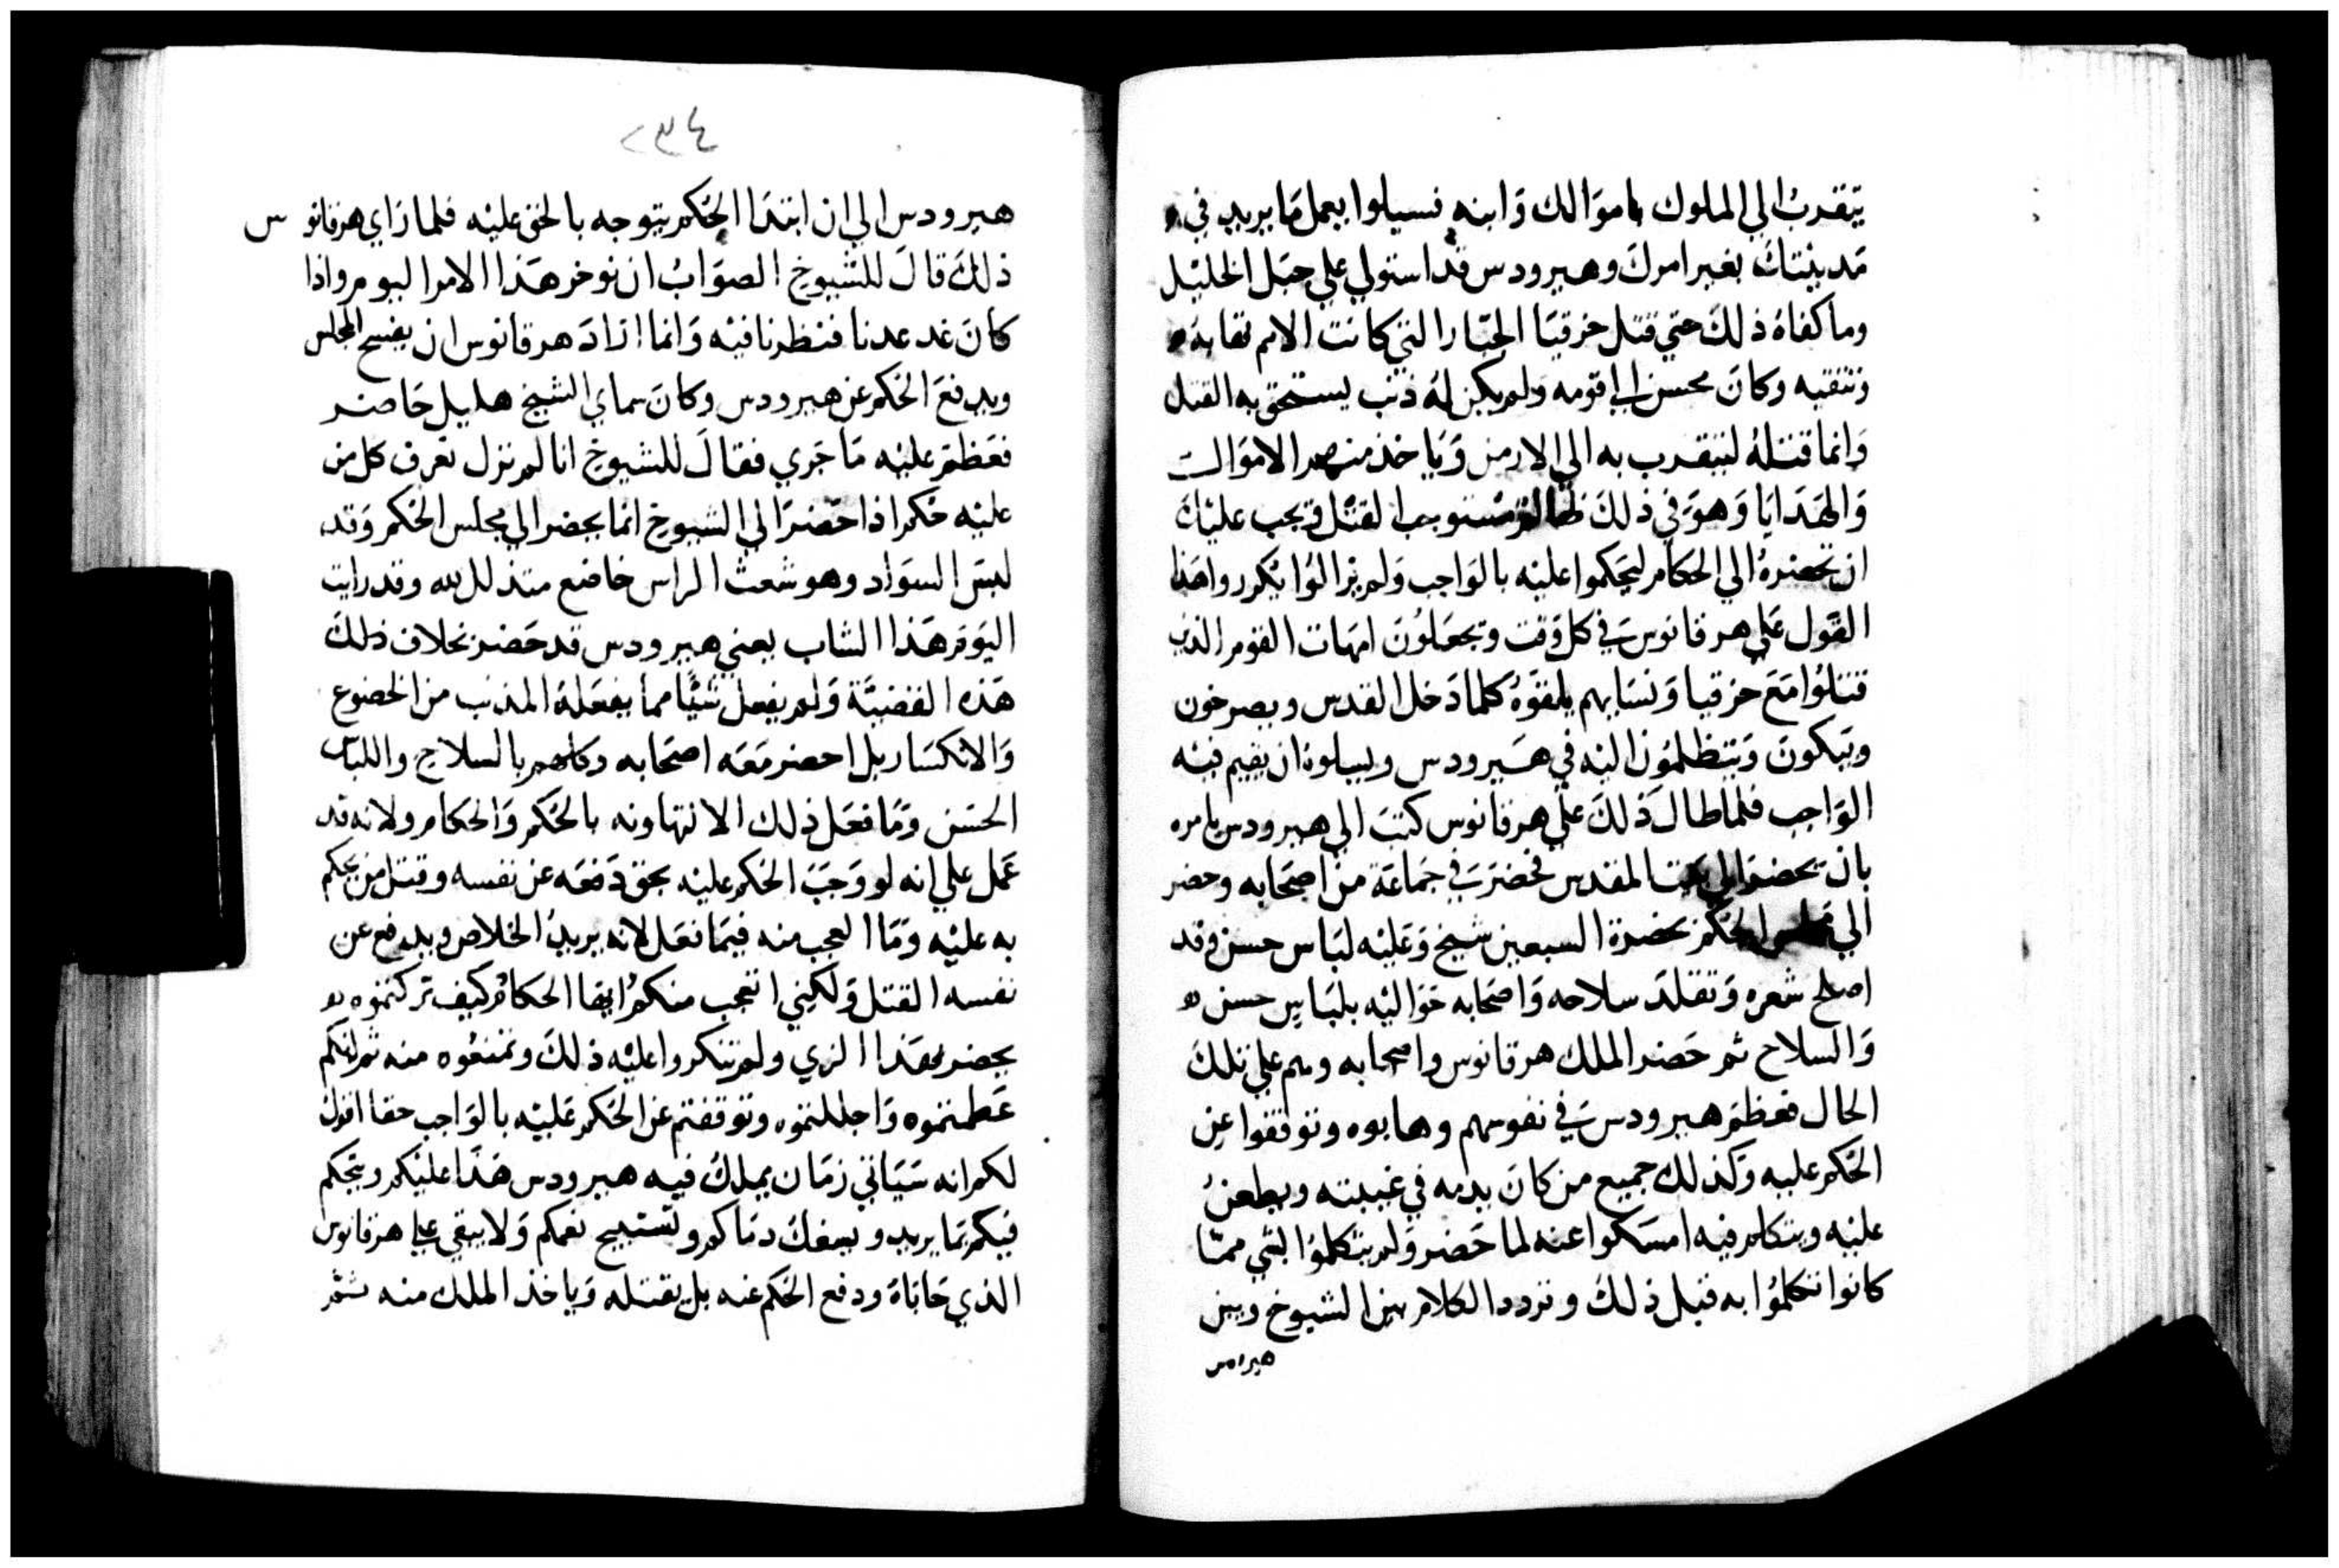 يتقرب الي الملوك باموالك وابنه فسيلوا يعمل ما يريد في
مدينتك بغير امرك وهيرودس قد استولي علي جبل الخليل
وما كفاه ذلك حتي قتل حزقيا الجبار التي كانت الامم تهابه
وتتقيه وكان محسن الي قومه ولم يكن له ذنب يستحق به القتل
وانما قتله ليتقرب به الي الارمن وياخذ منهم الاموال
والهدايا وهو في ذلك ظالم مستوجب القتل فيجب عليك
ان تحضره الي الحكام ليحكموا عليه بالواجب ولم يزالوا يكرروا هذا
القول علي هرقانوس في كل وقت ويجعلون امهات القوم الذين
قتلوا مع حزقيا ونسايهم يلقوه كلما دخل القدس ويصرخون
ويبكون ويتظلمون اليه في هيرودس ويسلوه ان يقيم فيه
الواجب فلما طال ذلك علي هرقانوس كتب الي هيرودس يامره
بان يحضر الي بيت المقدس فحضر في جماعة من اصحابه وحضر
الي مجلس الحكم بحضرة السبعين شيخ وعليه لباس حسن وقد
اصلح شعره وتقلد سلاحه واصحابه حواليه بلباس حسن
والسلاح ثم حضر الملك هرقانوس واصحابه وهم علي تلك
الحال فعظم هيرودس في نفوسهم وهابوه وتوقفوا عن
الحكم عليه وكذلك جميع من كان يدمه في غيبته ويطعن
عليه ويتكلم فيه امسكوا عنه لما حضر ولم يتكلموا بشي مما
كانوا تكلموا به قبل ذلك وتردد الكلام بين الشيوخ وبين
هيرودس
٢٣٤
هيرودس الي ان ابتدا الحكم يتوجه بالحق عليه فلما راي هرقانوس
ذلك قال للشيوخ الصواب ان نوخر هذا الامر اليوم واذا
كان غد عدنا فنظرنا فيه وانما اراد هرقانوس ان يفسح المجلس
ويدفع الحكم عن هيرودس وكان سماي الشيخ هليل حاضر
فعظم عليه ما جري فقال للشيوخ انا لم نزل نعرف كل من
عليه حكم اذا حضر الي الشيوخ انما يحضر الي مجلس الحكم وقد
لبس السواد وهو شعث الراس خاضع متذلل لله وقد رايت
اليوم هذا الشاب يعني هيرودس قد حضر بخلاف ذلك
هذه القضية ولم يفعل شيا مما يفعله المذنب من الخضوع
والانكسار بل احضر معه اصحابه وكلهم بالسلاح واللباس
الحسن وما فعل ذلك الا لتهاونه بالحكم والحكام ولانه قد
عمل علي انه لو وجب الحكم عليه بحق دفعه عن نفسه وقتل من يحكم
به عليه وما العجب منه فيما فعل لانه يريد الخلاص ويدفع عن
نفسه القتل ولكنني اتعجب منكم ايها الحكام كيف تركتموه
يحضر بهذا الزي ولم تنكروا عليه ذلك وتمنعوه منه ثم انكم
عظمتموه واجللتموه وتوقفتم عن الحكم عليه بالواجب حقا اقول
لكم انه سياتي زمان يملك فيه هيرودس هذا عليكم ويحكم
فيكم بما يريد ويسفك دماكم ويستبيح نعمكم ولا يبقي علي هرقانوس
الذي حاباه ودفع الحكم عنه بل يقتله وياخذ الملك منه ثم